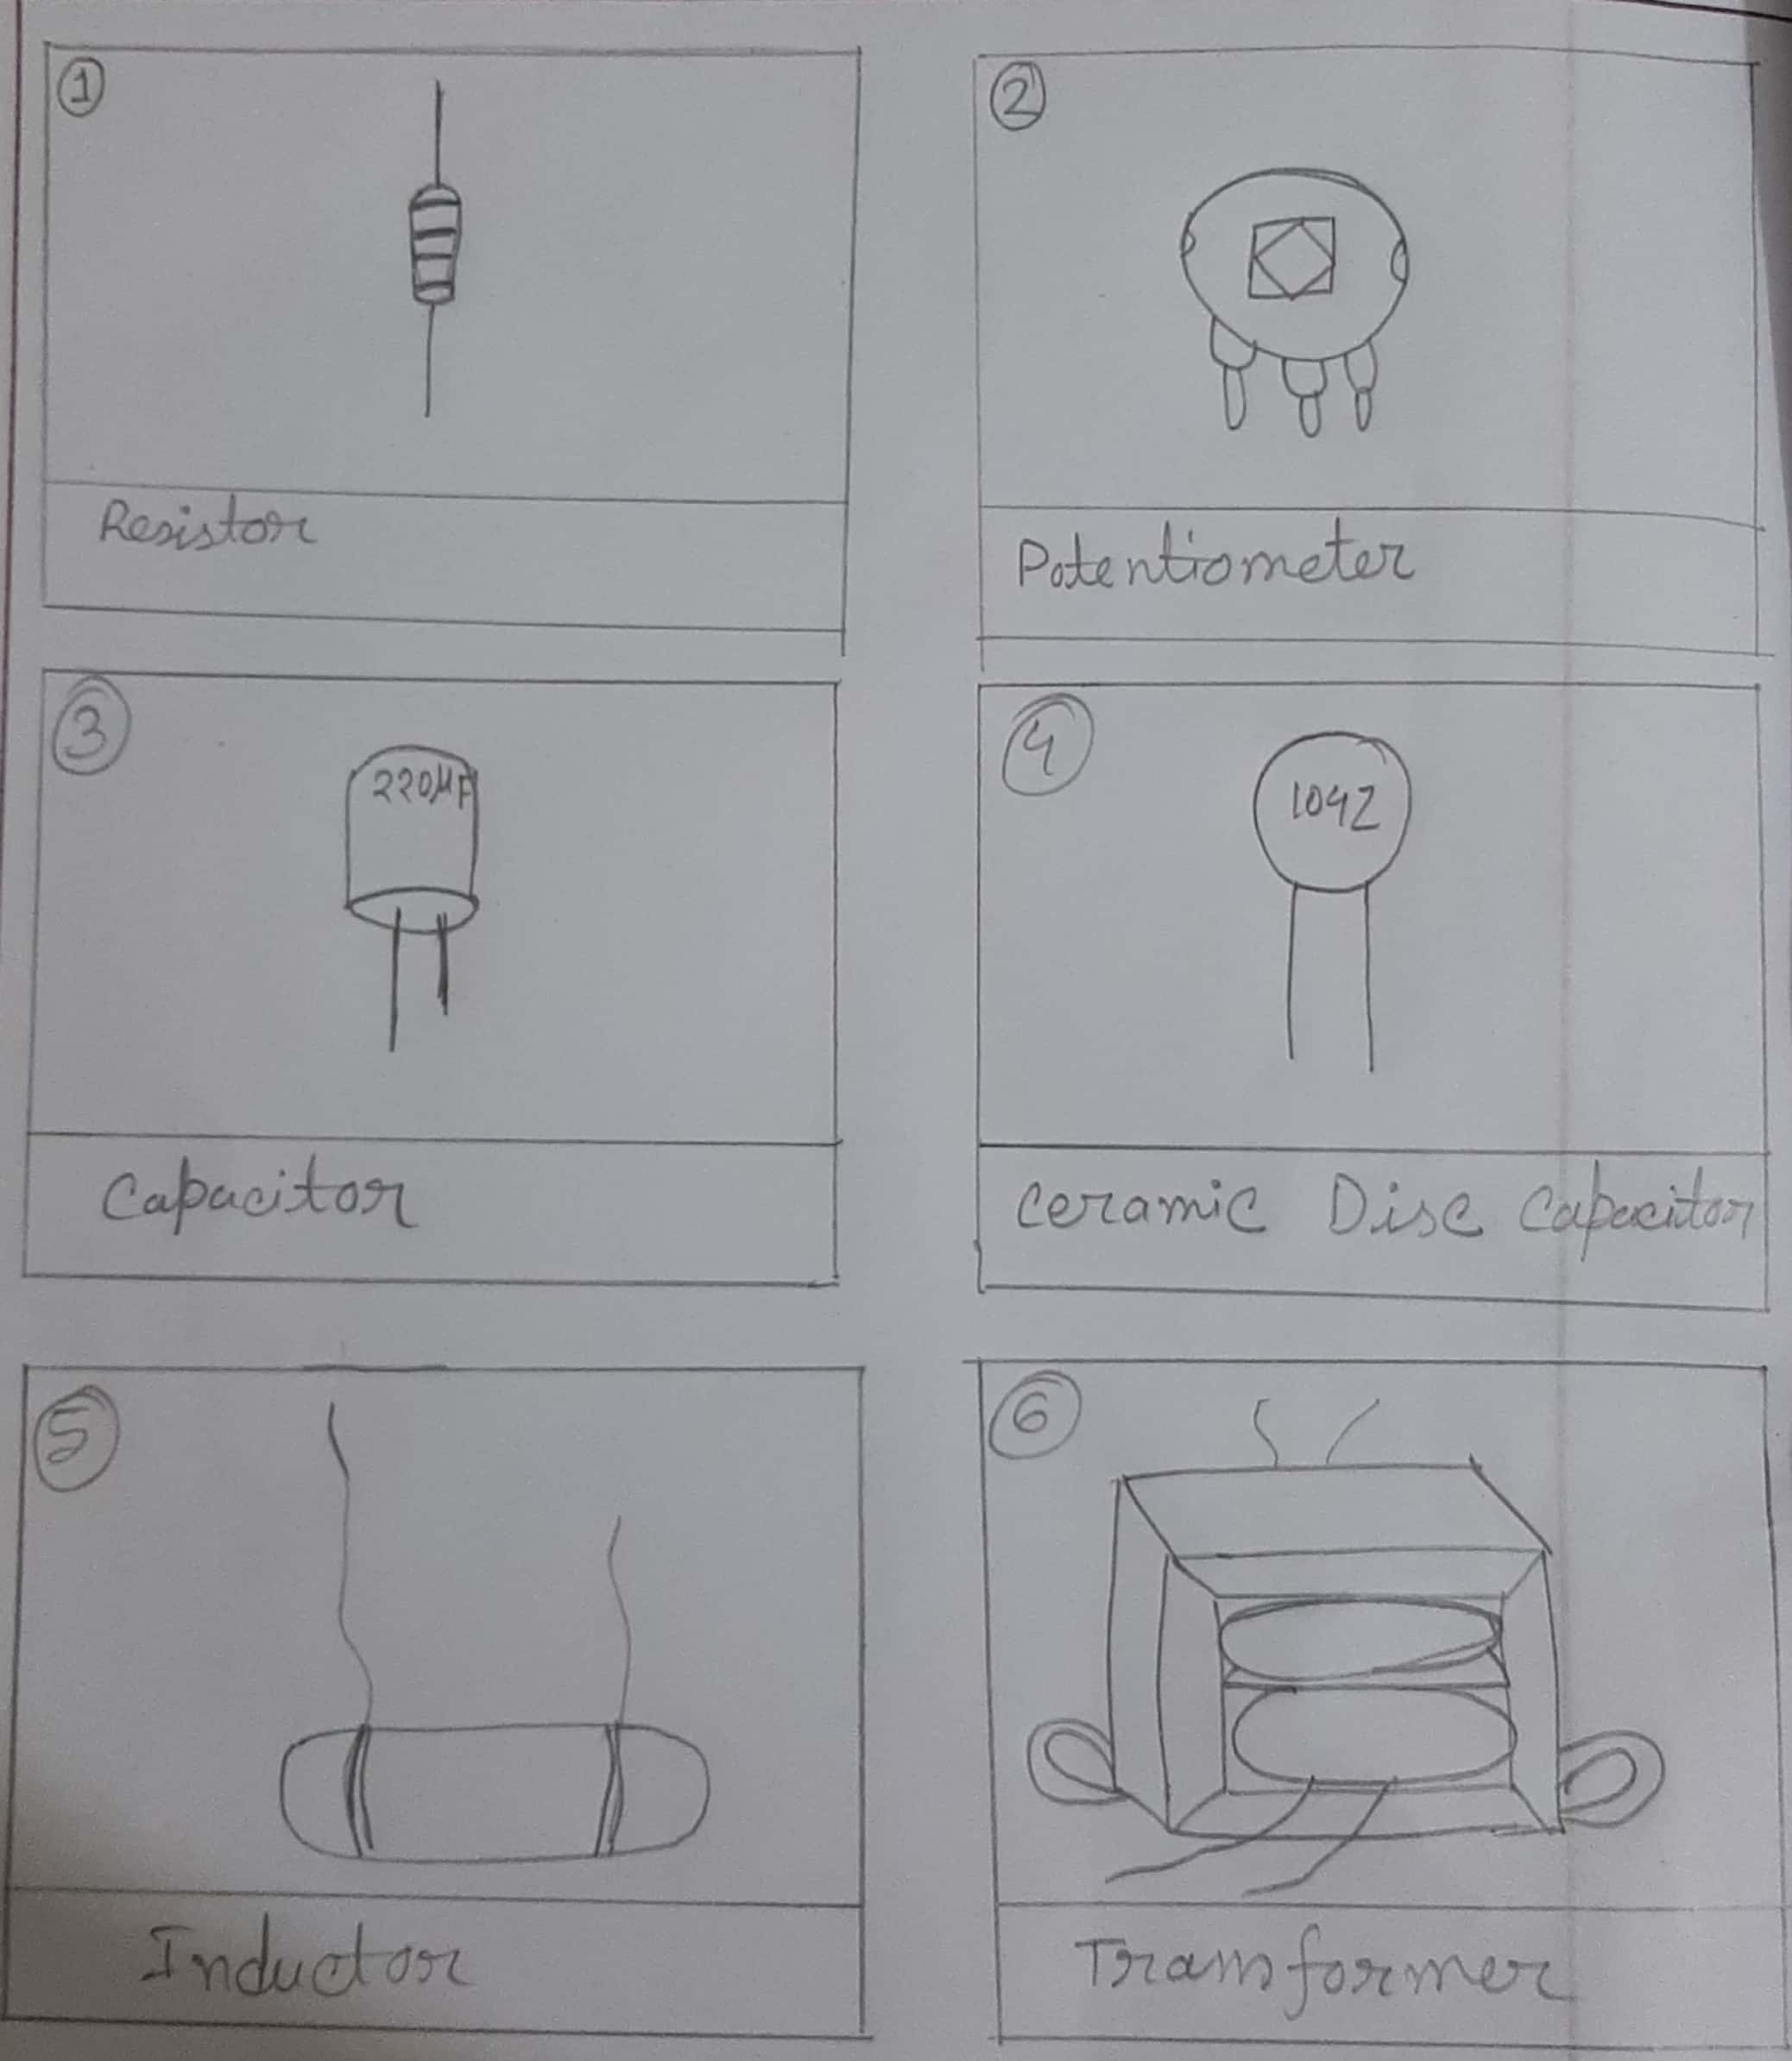 1
2
Resistor
Potentiometer
3
220µF
4
104Z
Capacitor
Ceramic Disc Capacitor
5
6
Inductor
Transformer